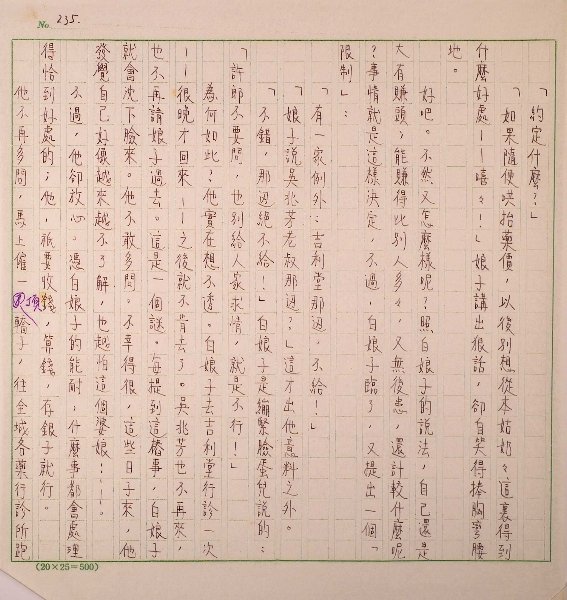 No. 235.
「約定什麼?」
「如果隨便哄抬藥價,以後別想從本姑奶々這裏得到
什麼好處——嘻々!」娘子講出狠話,卻自笑得捧胸彎腰
地。
好吧。不然又怎麼樣呢?照白娘子的說法,自己還是
大有賺頭;能賺得比別人多々,又無後患,還計較什麼呢
?事情就是這樣決定,不過,白娘子臨了,又提出一個「
限制」:
「有一家例外:吉利堂那邊,不給!」
「娘子說吳兆芳老叔那邊?」這不出他意料之外。
「不錯,那邊絕不給!」白娘子是繃緊臉蛋兒說的:
「許郎不要問,也別給人家求情,就是不行!」
為何如此?他實在想不透。白娘子去吉利堂行診一次
——很晚才回來——之後就不肯去了。吳兆芳也不再來,
也不再請娘子過去。這是一個謎。每提到這樁事,白娘子
就會沈下臉來。他不敢多問。不幸得很,這些日子來,他
發覺自己好像越來越不了解,也越怕這個婆娘……。
不過,他卻放心。憑白娘子的能耐,什麼事都會處理
得恰到好處的;他,祇要收錢,算錢,存銀子就行。
他不再多問,馬上僱一頂轎子,往全城各藥行診所跑
(20×25=500)